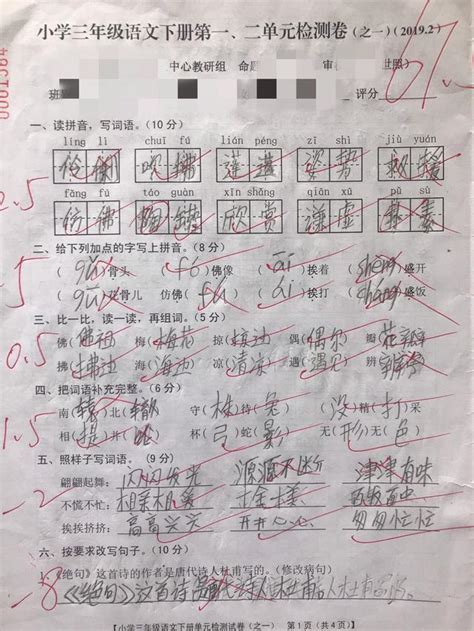 小学三年级语文下册第一、二单元检测卷(之一)(2019.2)
中心教研组 命 审
班 评分
一、读拼音，写词语。(10 分)
líng lì chuī fú lián péng zī shì jiù yuán
伶俐 吹拂 莲蓬 姿势 救援
fǎng fú táo guàn xīn shǎng qiān xū pǔ sù
仿佛 陶罐 欣赏 谦虚 朴素
-5
二、给下列加点的字写上拼音。(8 分)
(gǔ)骨头 (fó)佛像 (āi)挨着 (shèng)盛开
(gū)花骨儿 仿佛(fú) (ái)挨打 (chéng)盛饭
三、比一比，读一读，再组词。(5 分)
佛 梅(梅花) 掠 偶(偶尔) 瓣(花瓣)
拂 海(海边) 凉 遇(遇见) 辨
四、把词语补充完整。(6 分)
南(辕)北(辙) 守(株)待(兔) (没)精(打)采
相(提)并(论) 杯(弓)蛇(影) 无(形)无(色)
五、照样子写词语。(6 分)
翩翩起舞： 闪闪发光 源源不断 津津有味
-2
不慌不忙：
挨挨挤挤： 高高兴兴 开开心心 匆匆忙忙
六、按要求改写句子。(10 分)
《绝句》这首诗的作者是唐代诗人杜甫写的。(修改病句)
-8
《绝句》这首诗
【小学三年级语文下册单元检测试卷(之一) 第1页(共4页)】